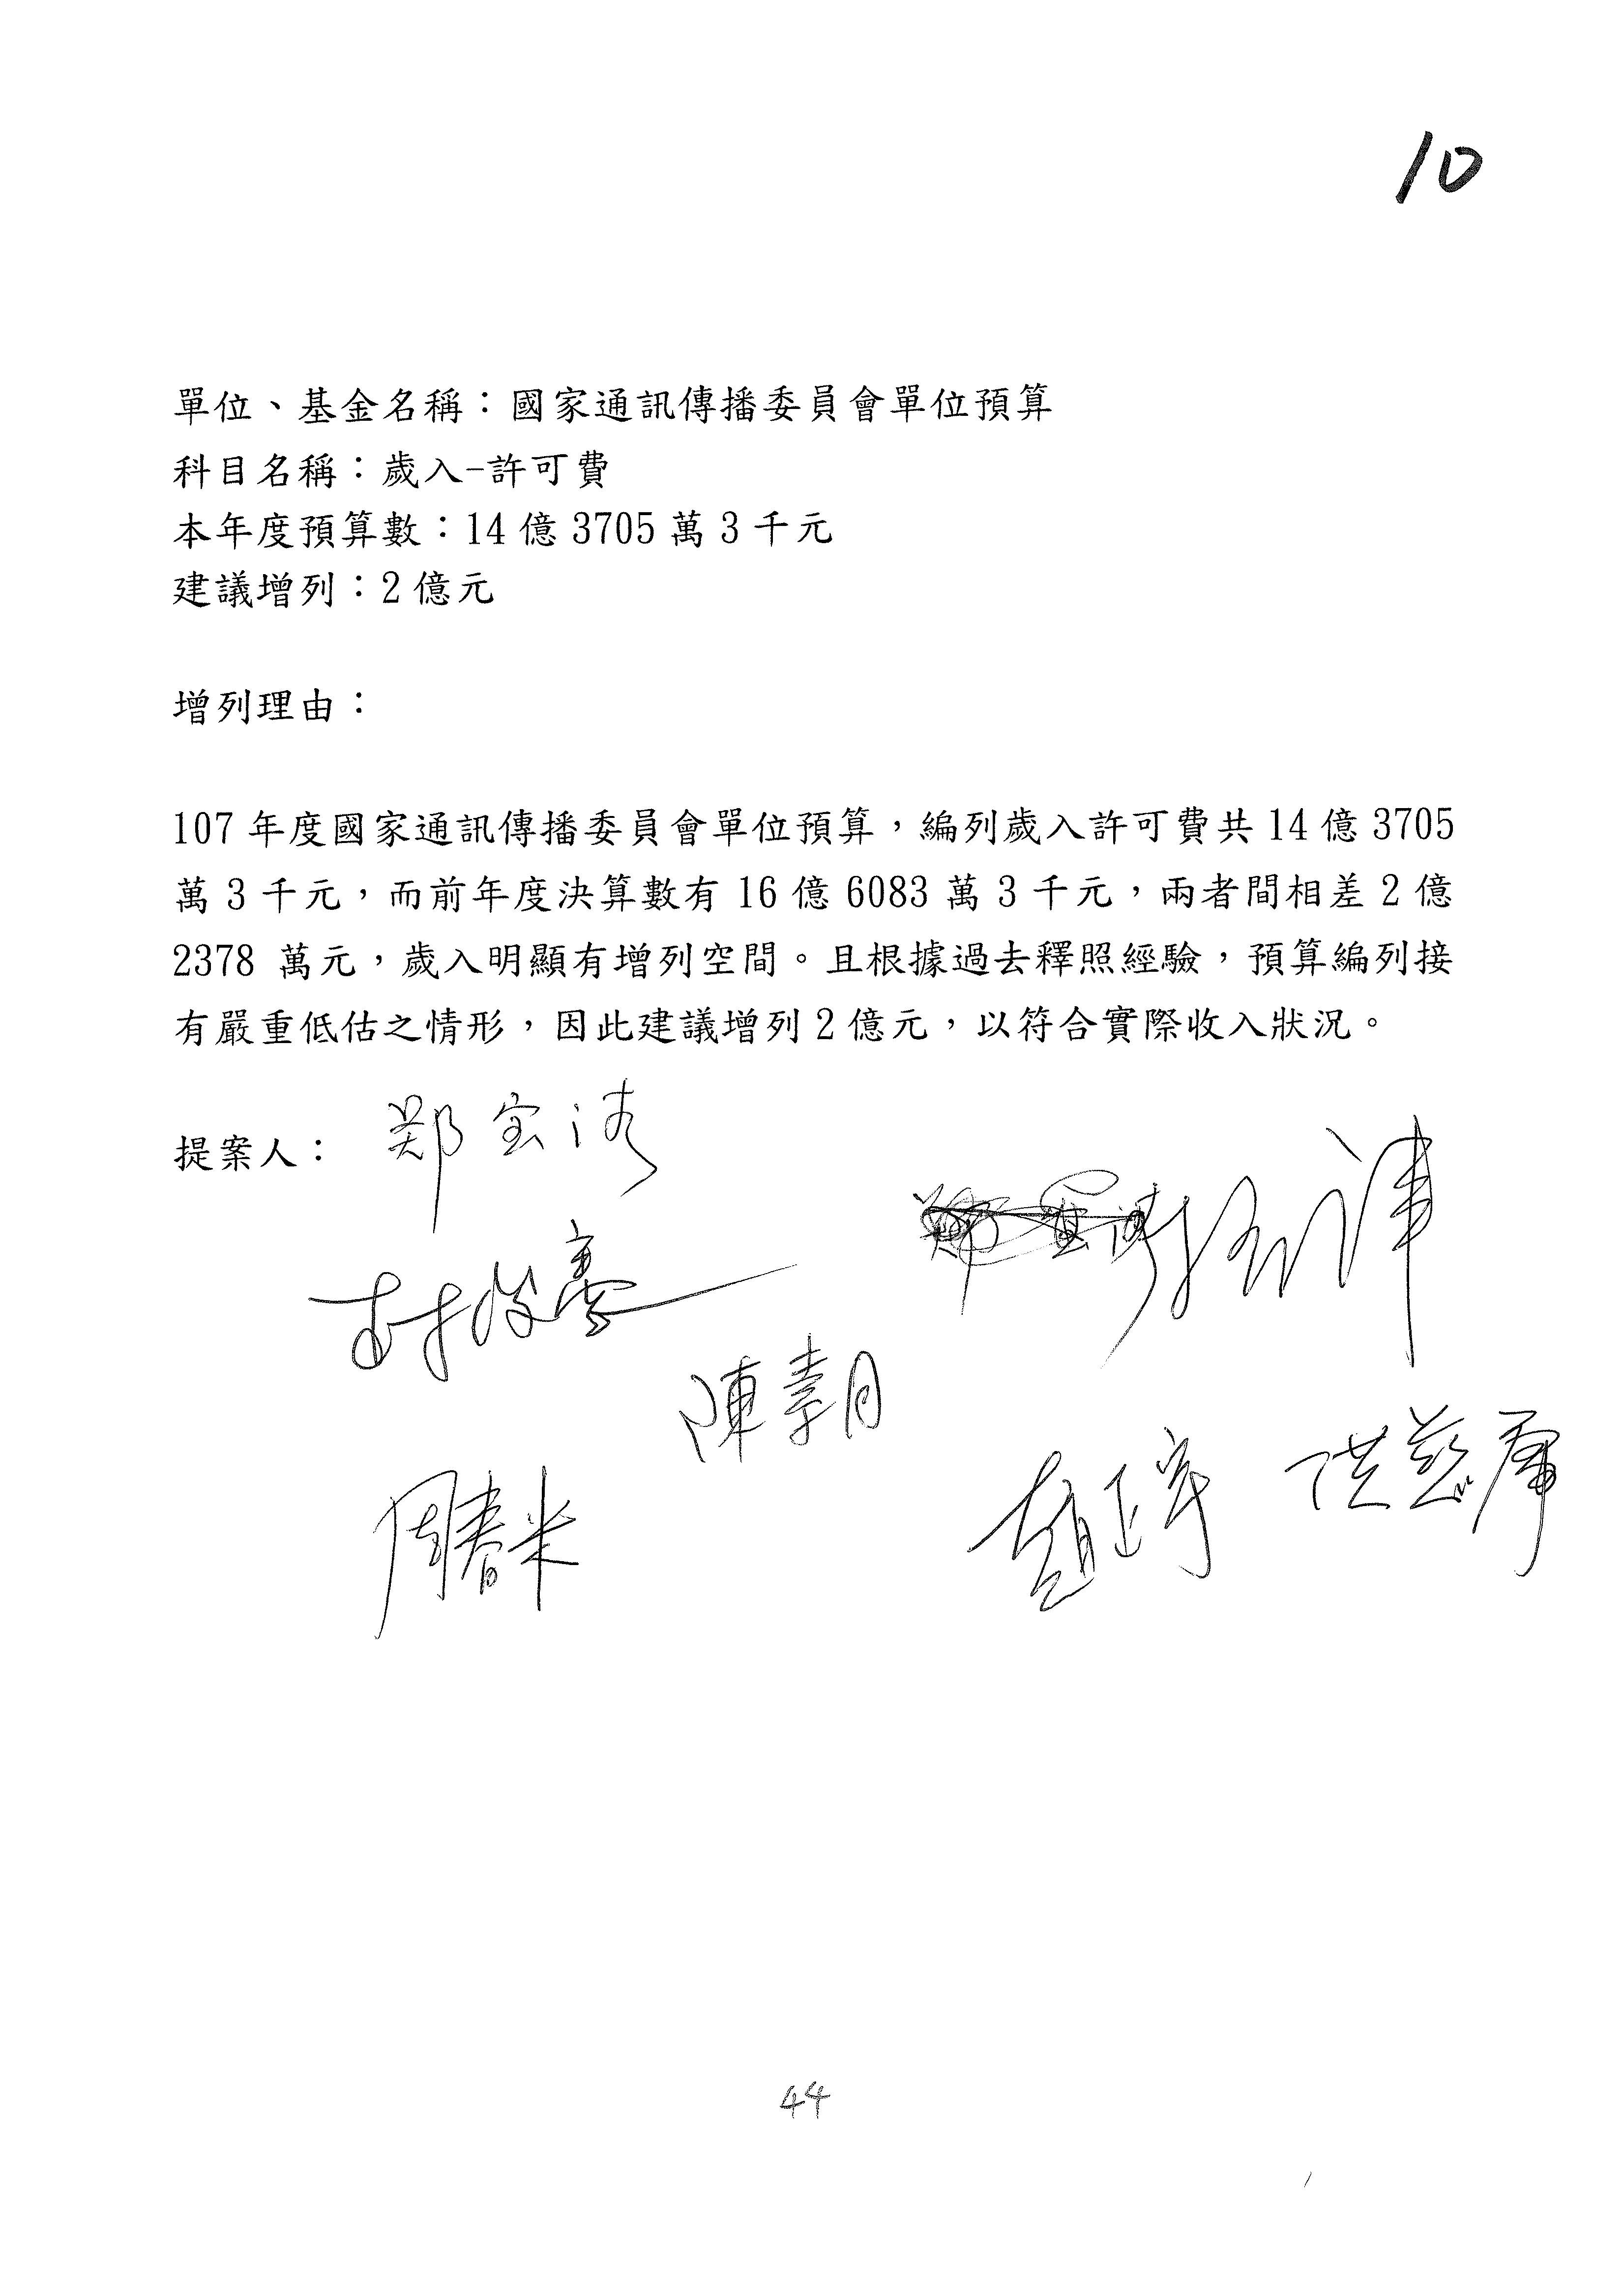 10
單位、基金名稱：國家通訊傳播委員會單位預算
科目名稱：歲入-許可費
本年度預算數：14 億 3705 萬 3 千元
建議增列：2 億元
增列理由：
107 年度國家通訊傳播委員會單位預算，編列歲入許可費共 14 億 3705
萬 3 千元，而前年度決算數有 16 億 6083 萬 3 千元，兩者間相差 2 億
2378 萬元，歲入明顯有增列空間。且根據過去釋照經驗，預算編列接
有嚴重低估之情形，因此建議增列 2 億元，以符合實際收入狀況。
提案人： 鄭宝清
林俊憲
陳素月
周春米
趙正宇 洪慈庸
44